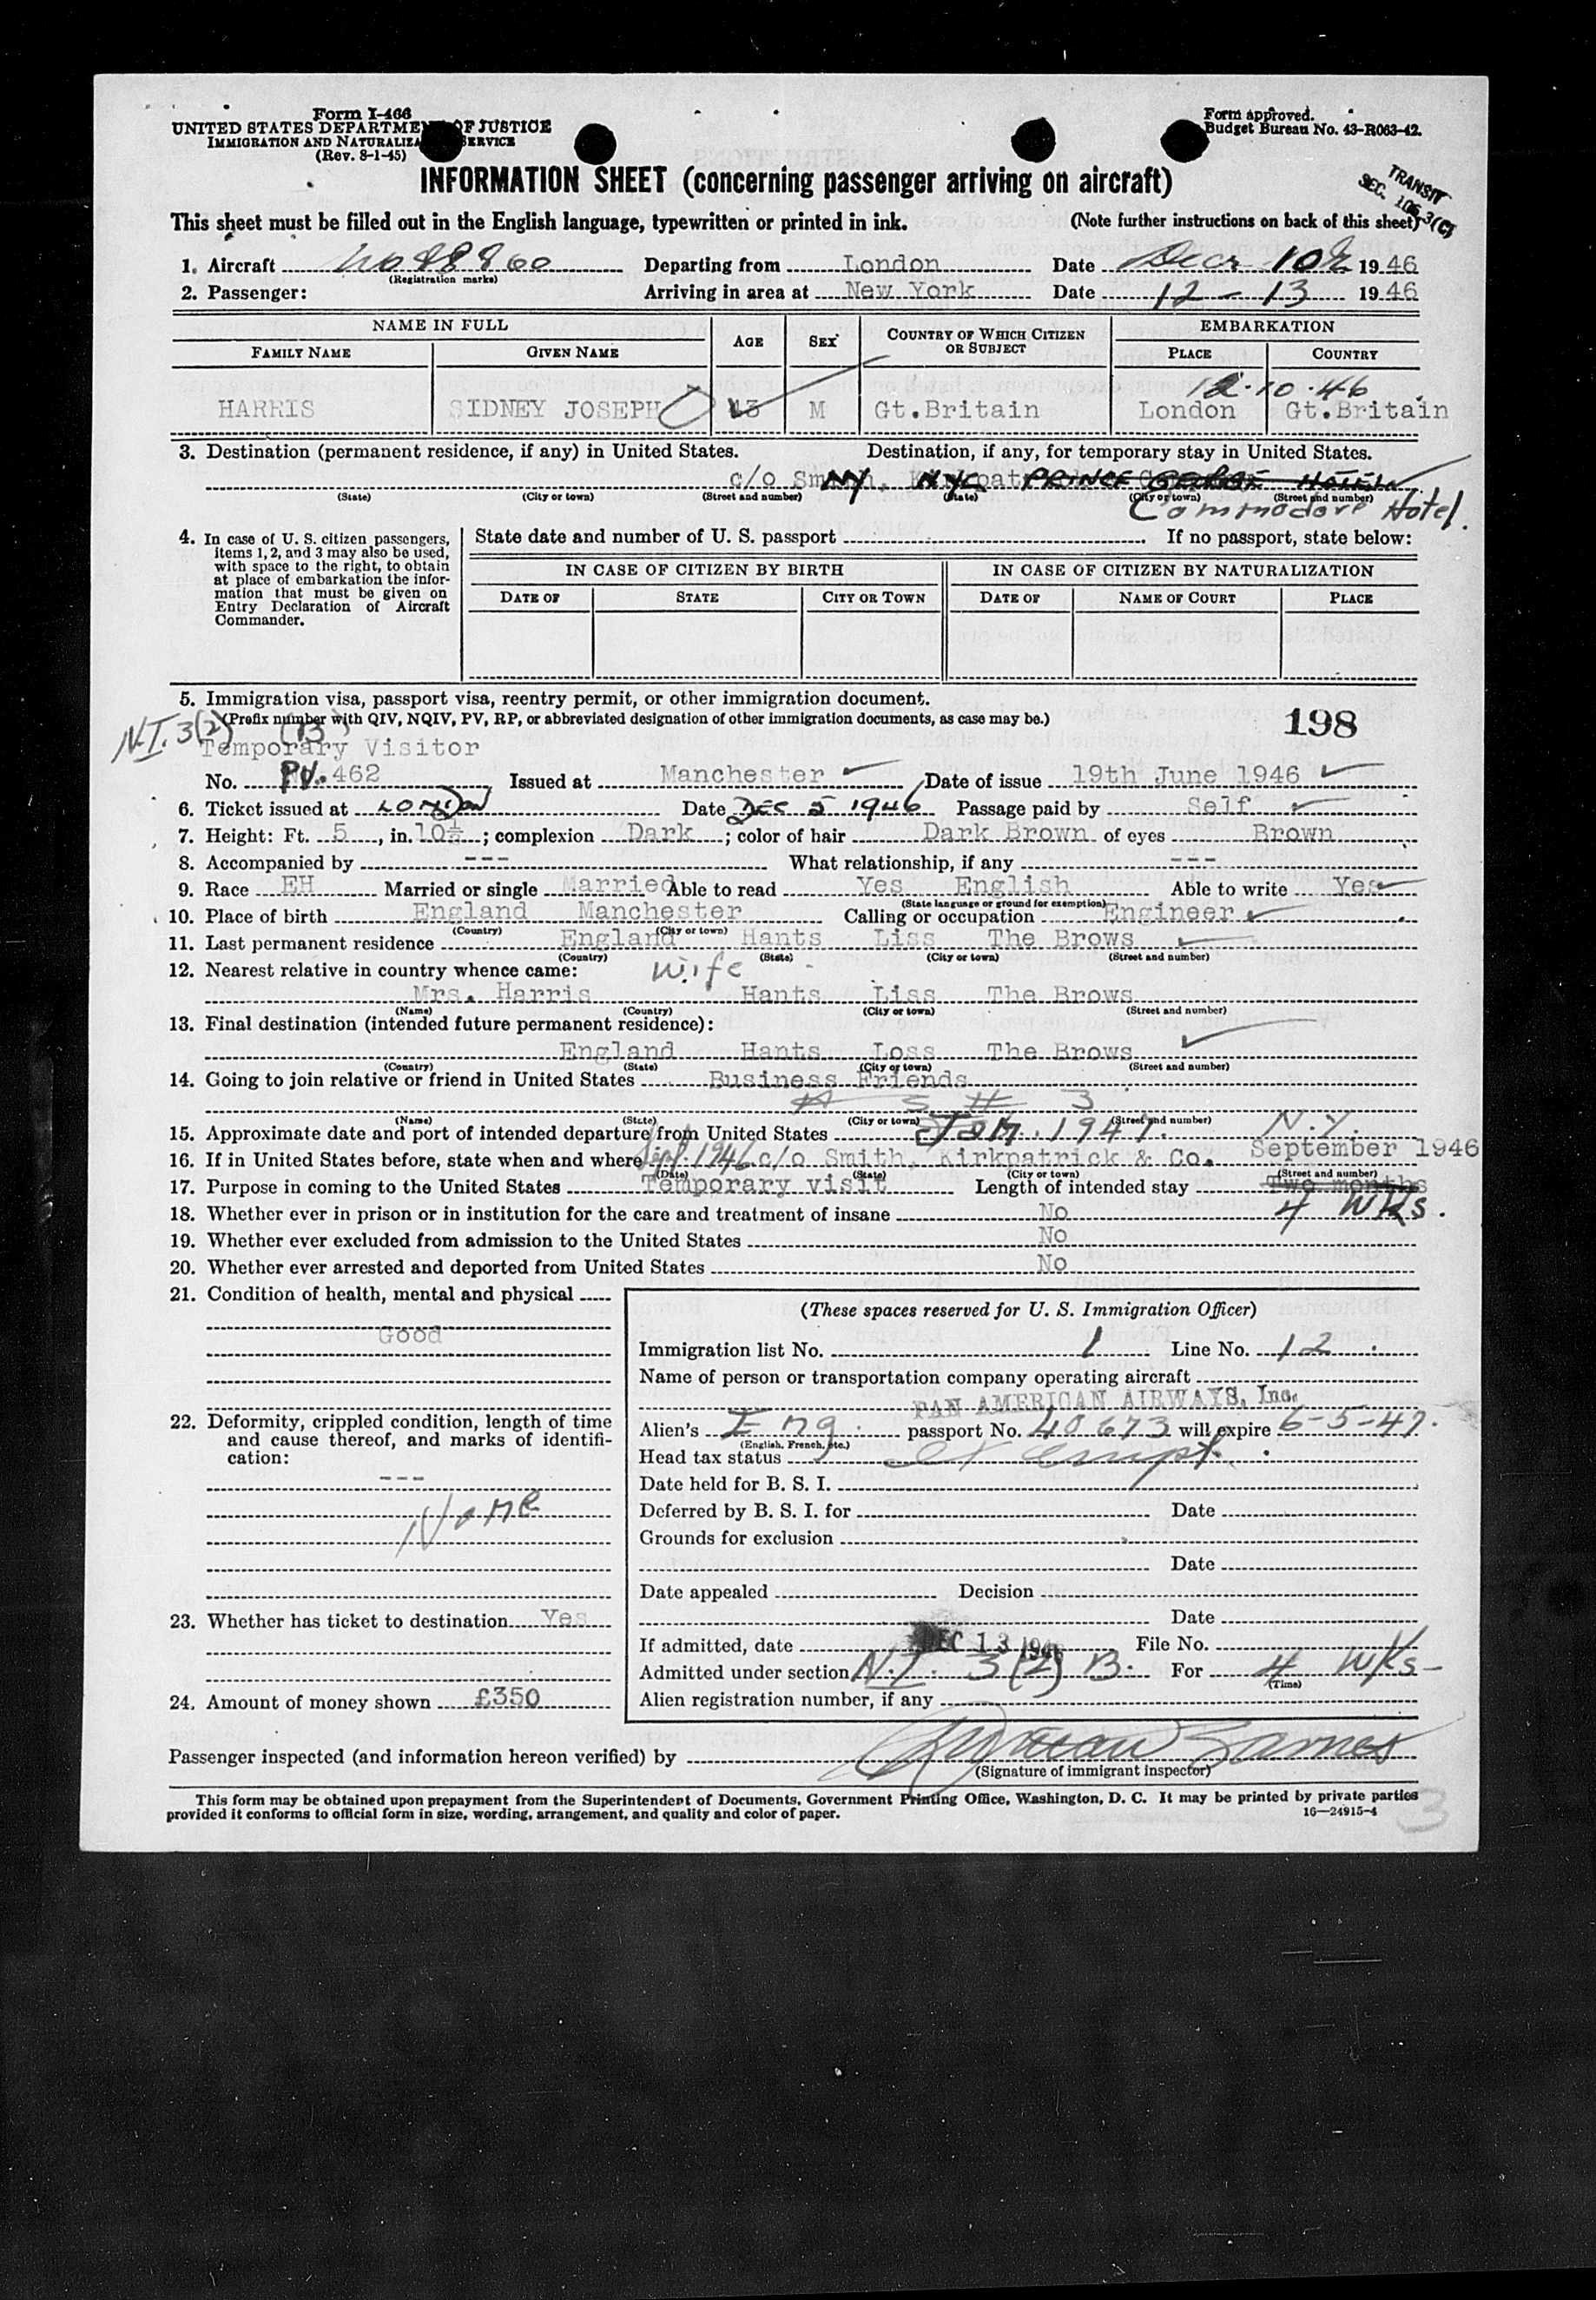 Form I-466
UNITED STATES DEPARTMENT OF JUSTICE
IMMIGRATION AND NATURALIZATION SERVICE
(Rev. 8-1-45)
Form approved.
Budget Bureau No. 43-R063-42.
INFORMATION SHEET (concerning passenger arriving on aircraft)
TRANSIT
SEC. 106.3(C)
This sheet must be filled out in the English language, typewritten or printed in ink. (Note further instructions on back of this sheet)
1. Aircraft 88860 Departing from London Date Decr 10 1946
(Registration marks)
2. Passenger: Arriving in area at New York Date 12-13 1946
NAME IN FULL AGE SEX COUNTRY OF WHICH CITIZEN OR SUBJECT EMBARKATION
FAMILY NAME GIVEN NAME PLACE COUNTRY
12.10.46
HARRIS SIDNEY JOSEPH 43 M Gt.Britain London Gt.Britain
3. Destination (permanent residence, if any) in United States. Destination, if any, for temporary stay in United States.
c/o Smith, Kirkpatrick NY NYC PRINCE GEORGE HOTEL
(State) (City or town) (Street and number) (State) (City or town) (Street and number)
Commodore Hotel.
4. In case of U. S. citizen passengers, items 1, 2, and 3 may also be used, with space to the right, to obtain at place of embarkation the information that must be given on Entry Declaration of Aircraft Commander.
State date and number of U. S. passport If no passport, state below:
IN CASE OF CITIZEN BY BIRTH IN CASE OF CITIZEN BY NATURALIZATION
DATE OF STATE CITY OR TOWN DATE OF NAME OF COURT PLACE
5. Immigration visa, passport visa, reentry permit, or other immigration document.
(Prefix number with QIV, NQIV, PV, RP, or abbreviated designation of other immigration documents, as case may be.) 198
N.I. 3(2) (B)
Temporary Visitor
No. PV. 462 Issued at Manchester Date of issue 19th June 1946
6. Ticket issued at LONDON Date DEC 5 1946 Passage paid by Self
7. Height: Ft. 5, in. 10½; complexion Dark; color of hair Dark Brown of eyes Brown
8. Accompanied by --- What relationship, if any ---
9. Race EH Married or single Married Able to read Yes English Able to write Yes
(State language or ground for exemption)
10. Place of birth England Manchester Calling or occupation Engineer
(Country) (City or town)
11. Last permanent residence England Hants Liss The Brows
(Country) (State) (City or town) (Street and number)
12. Nearest relative in country whence came: Wife
Mrs. Harris Hants Liss The Brows
(Name) (Country) (City or town) (Street and number)
13. Final destination (intended future permanent residence):
England Hants Loss The Brows
(Country) (State) (City or town) (Street and number)
14. Going to join relative or friend in United States Business Friends
(Name) (State) (City or town) (Street and number)
15. Approximate date and port of intended departure from United States Jan. 1947. N.Y.
16. If in United States before, state when and where Sept. 1946 c/o Smith, Kirkpatrick & Co. September 1946
(Date) (State) (City or town) (Street and number)
17. Purpose in coming to the United States Temporary visit Length of intended stay Two months
4 WKs.
18. Whether ever in prison or in institution for the care and treatment of insane No
19. Whether ever excluded from admission to the United States No
20. Whether ever arrested and deported from United States No
21. Condition of health, mental and physical
Good
22. Deformity, crippled condition, length of time and cause thereof, and marks of identification:
---
None
23. Whether has ticket to destination Yes
24. Amount of money shown £350
(These spaces reserved for U. S. Immigration Officer)
Immigration list No. 1 Line No. 12
Name of person or transportation company operating aircraft
PAN AMERICAN AIRWAYS, Inc.
Alien's Eng. passport No. 40673 will expire 6-5-47.
(English, French, etc.)
Head tax status exempt.
Date held for B. S. I.
Deferred by B. S. I. for Date
Grounds for exclusion
Date
Date appealed Decision
Date
If admitted, date DEC 13 1946 File No.
Admitted under section N.I. 3(2) B. For 4 WKs
(Time)
Alien registration number, if any
Passenger inspected (and information hereon verified) by
(Signature of immigrant inspector)
This form may be obtained upon prepayment from the Superintendent of Documents, Government Printing Office, Washington, D. C. It may be printed by private parties
provided it conforms to official form in size, wording, arrangement, and quality and color of paper. 16—24915-4
3